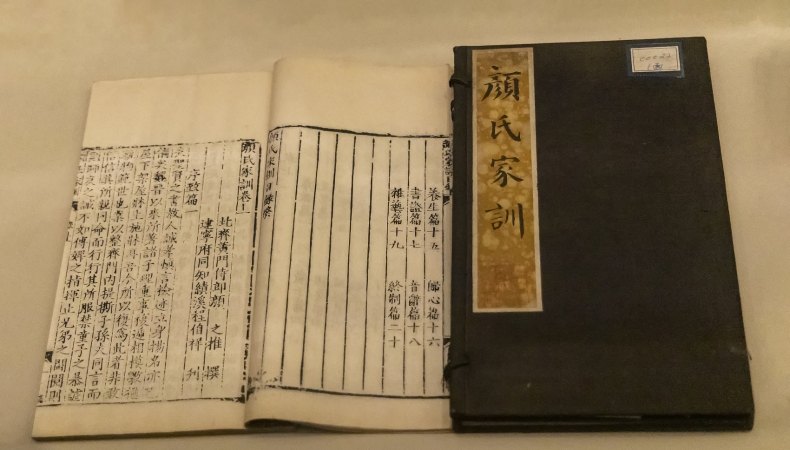 顔氏家訓
養生篇十五 歸心篇十六
書證篇十七 音辭篇十八
雜藝篇十九 終制篇二十
顏氏家訓目錄終
顏氏家訓卷上
北齊黃門侍郎顏 之推 撰
建寧府同知績溪程伯祥 刊
序致篇一
夫聖賢之書教人誠孝慎言檢迹立身揚名亦已
備矣魏晉以來所著諸子理重事複遞相模斆猶
屋下架屋牀上施牀耳吾今所以復為此者非敢
軌物範世也業以整齊門內提撕子孫夫同言而
信其所親同命而行行其所服禁童子之暴謔
則師友之誡不如傅婢之指揮止凡之鬪鬩則